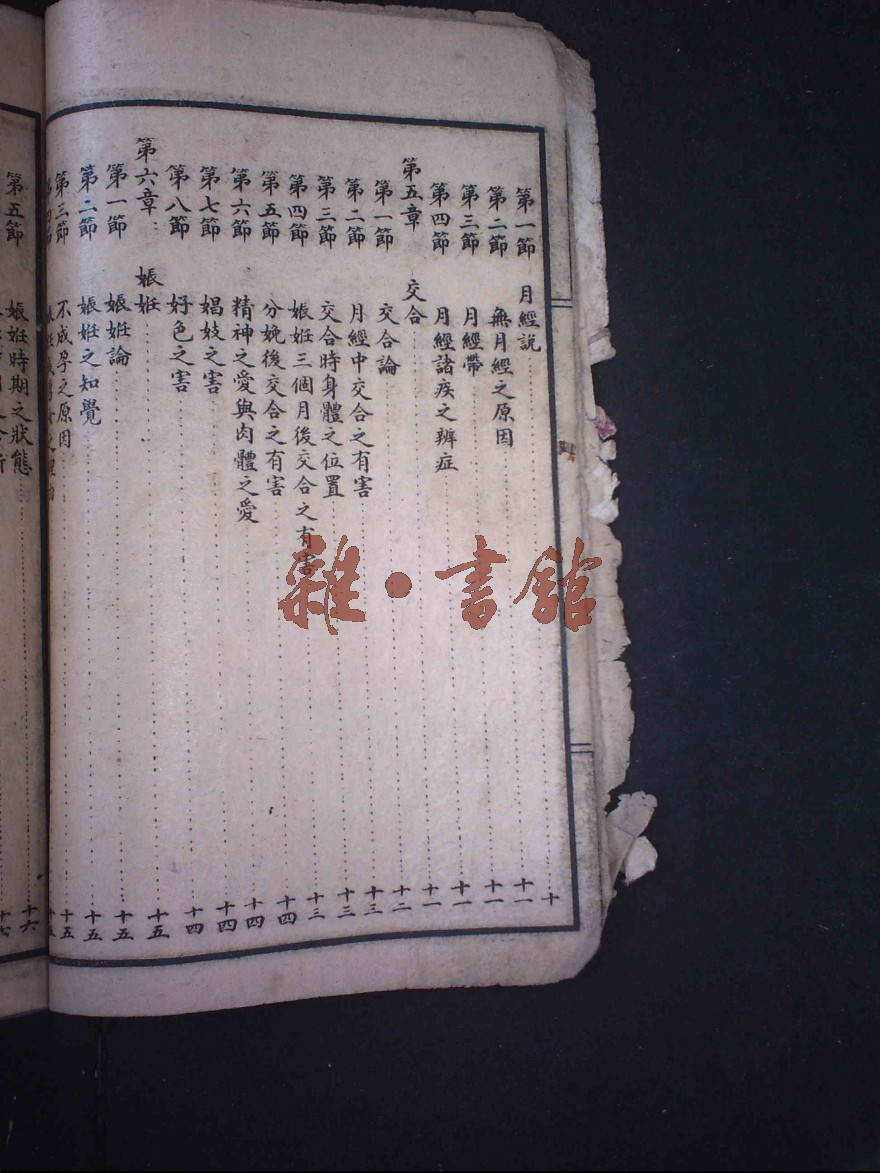 第一節 月經說 十
第二節 無月經之原因 十一
第三節 月經帶 十一
第四節 月經諸疾之辨症 十一
第五章 交合 十一
第一節 交合論 十二
第二節 月經中交合之有害 十三
第三節 交合時身體之位置 十三
第四節 娠妊三個月後交合之有害 十三
第五節 分娩後交合之有害 十四
第六節 精神之愛與肉體之愛 十四
第七節 娼妓之害 十四
第八節 好色之害 十四
第六章 娠妊 十五
第一節 娠妊論 十五
第二節 娠妊之知覺 十五
第三節 不成孕之原因 十五
第五節 娠妊時期之狀態 十六
十七
雜·書館